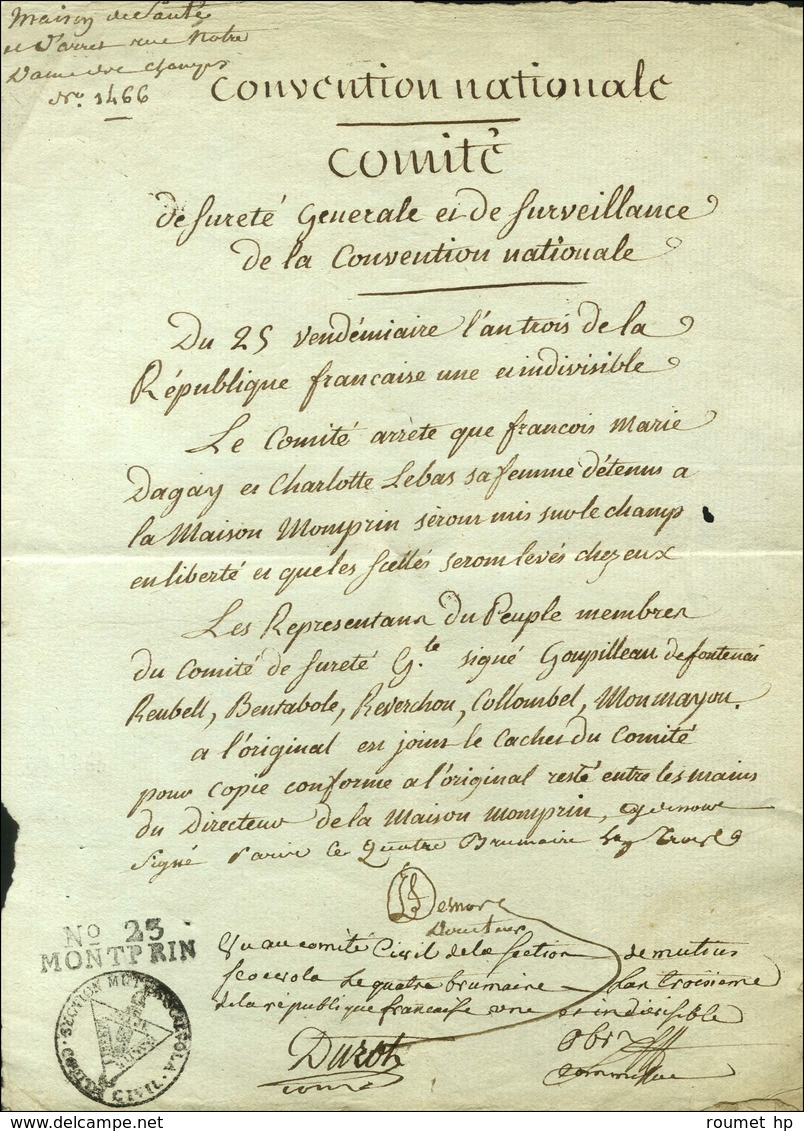 Maison de Santé
et d'arret rue Notre
Dame des Champs
No. 1466
Convention nationale
Comité
de Sureté Generale et de Surveillance
de la Convention nationale
Du 25 Vendémiaire l'an trois de la
République francaise une et indivisible
Le Comité arrète que francois Marie
Dagay et Charlotte Lebas sa femme détenus a
la Maison Momprin seront mis sur le champ
en liberté et que les scellés seront levés chez eux
Les Representans du Peuple membres
du Comité de Sureté G.le signé Goupilleau de fontenai
Reubell, Bentabole, Reverchon, Collombel, Monmayou.
a l'original est joint le Cachet du Comité
pour copie conforme a l'original resté entre les mains
du Directeur de la Maison momprin,
Signé Paris le Quatre Brumaire
Directeur
Vu au comité Civil de la Section de mutius
scaevola le quatre brumaire Lan troisieme
de la république francaise une et indivisible
Duzot
No 23
MONTPRIN
COMITÉ CIVIL. SECTION MUTIUS SCÆVOLA.